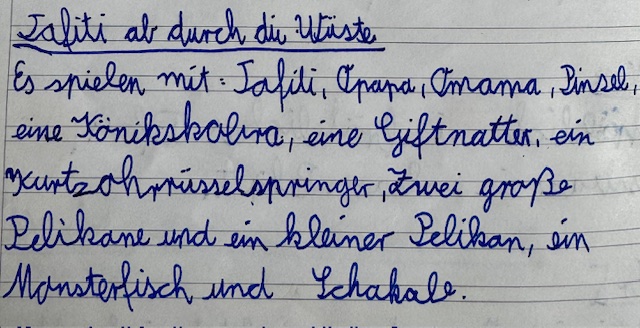 Tafiti ab durch die Wüste
Es spielen mit: Tafiti, Opapa, Omama, Pinsel,
eine Könikskobra, eine Giftnatter, ein
Kurtzohrrüsselspringer, Zwei große
Pelikane und ein kleiner Pelikan, ein
Monsterfisch und Schakale.